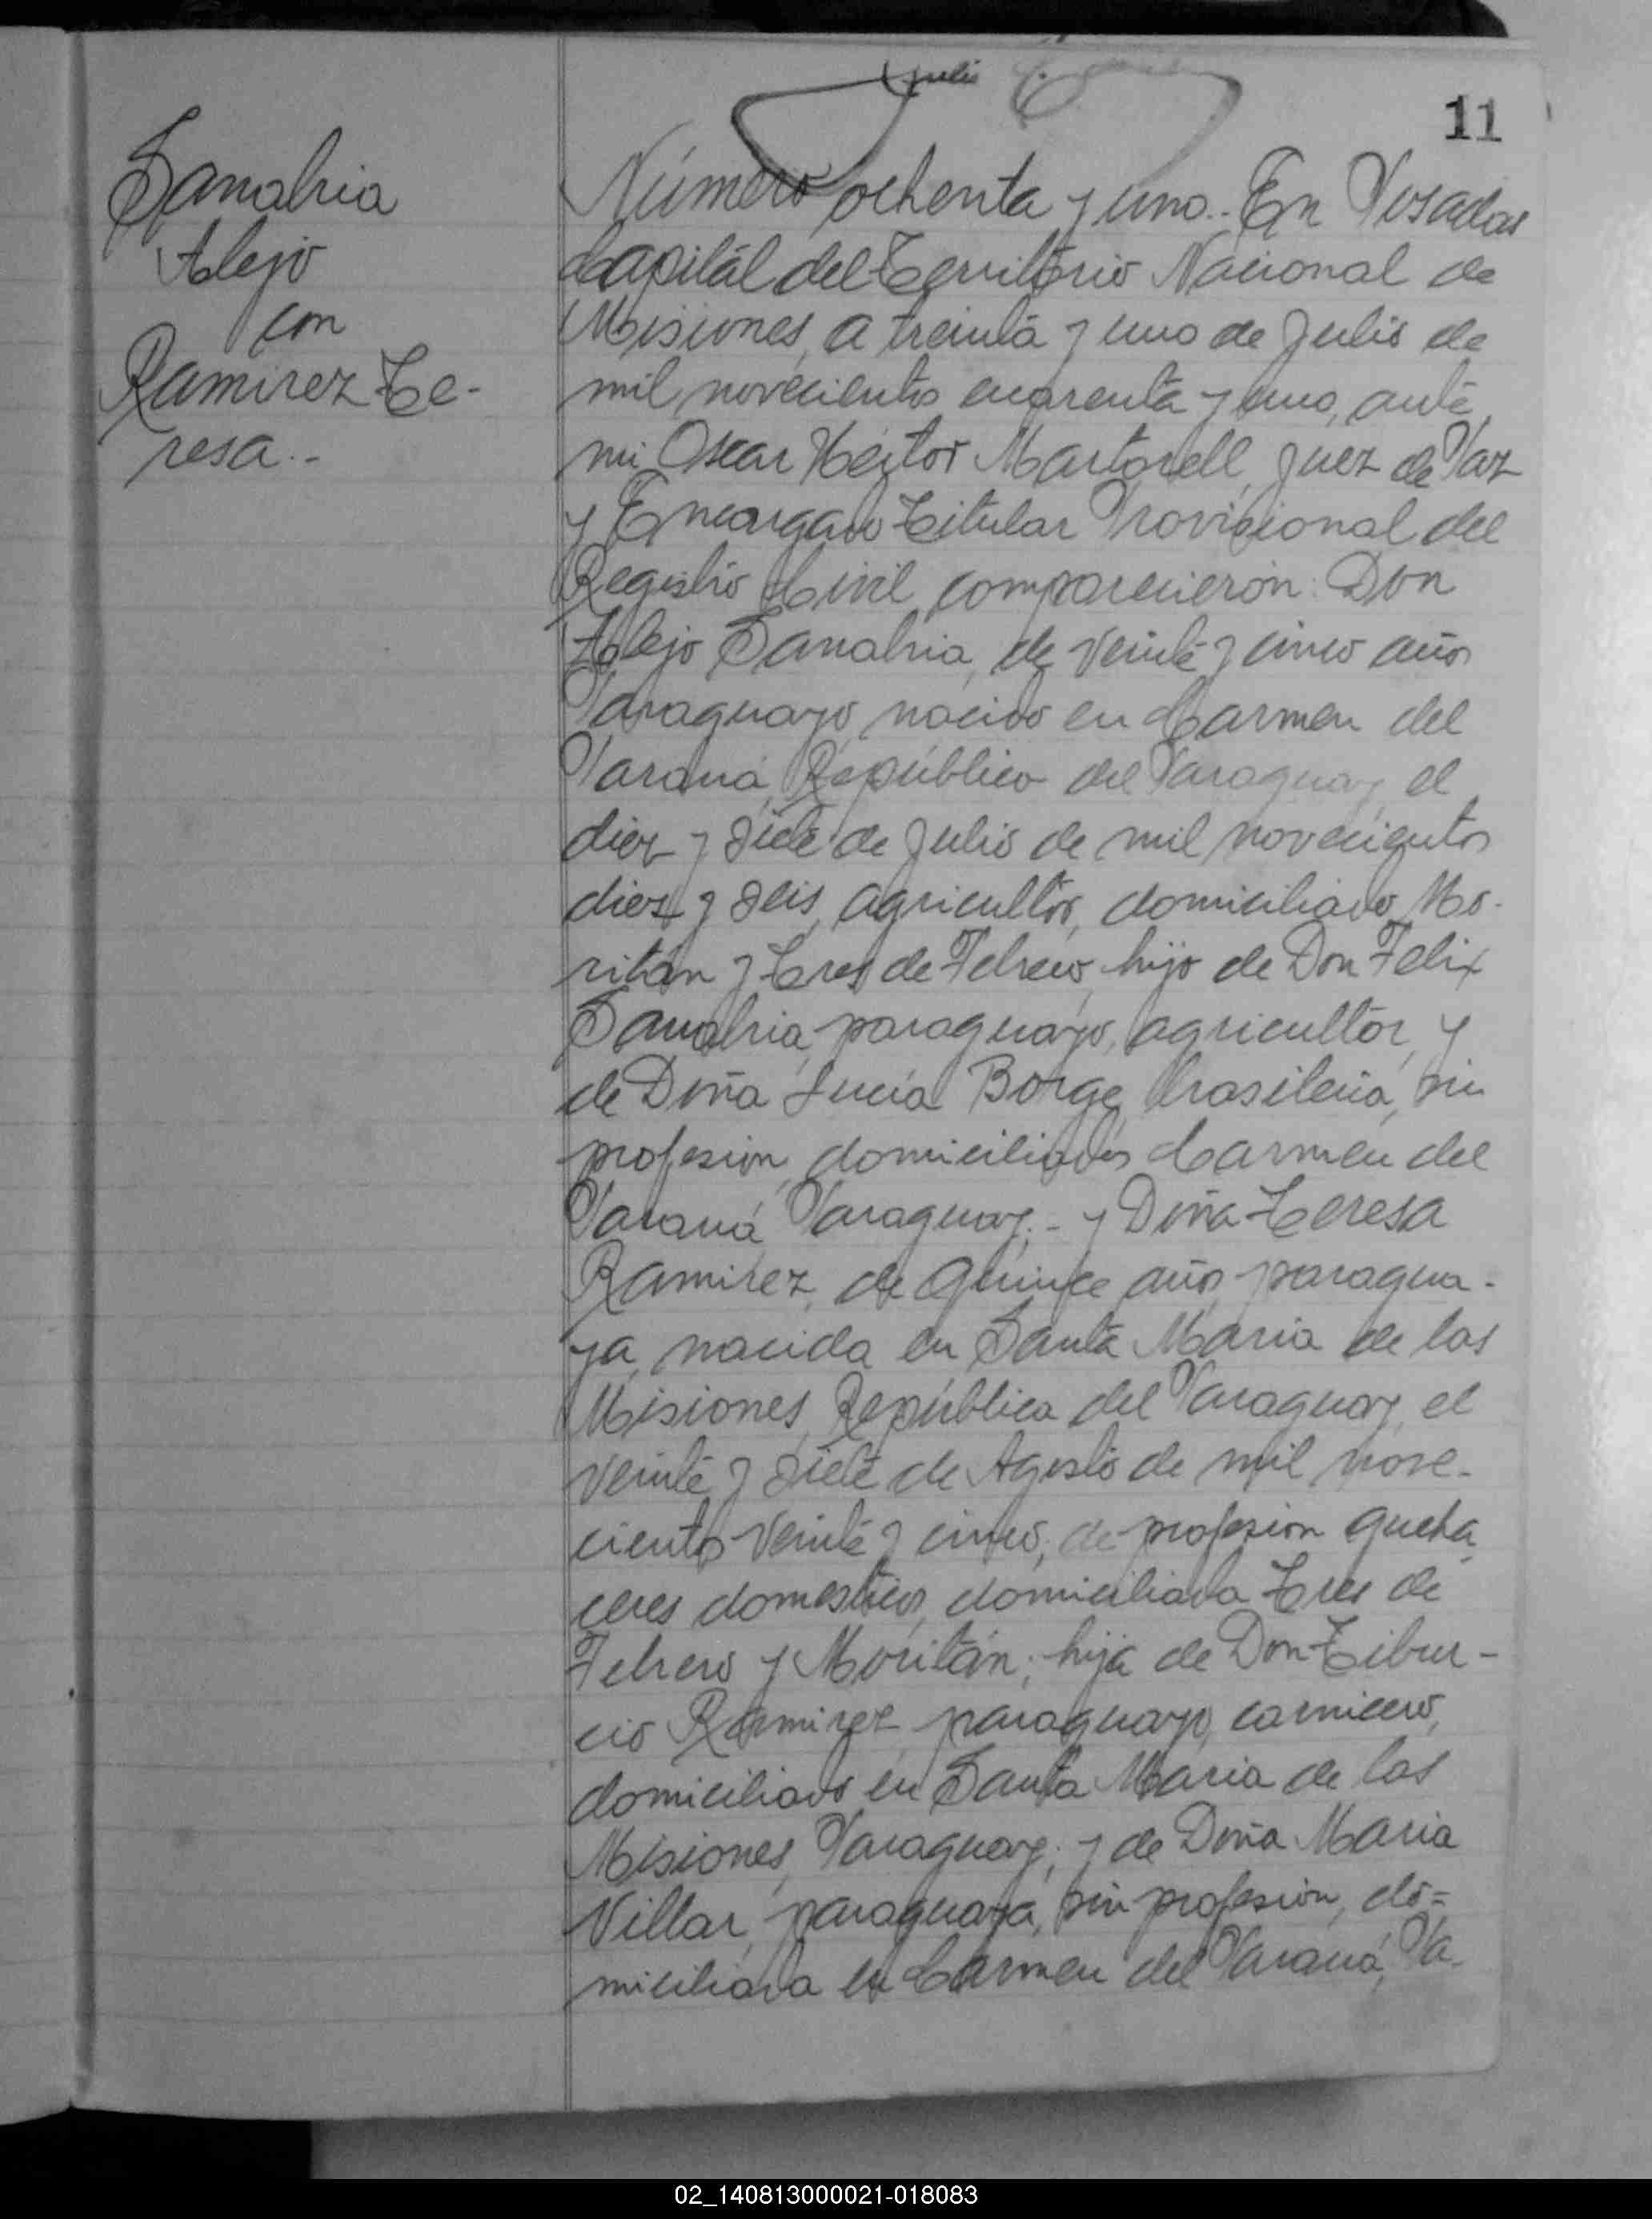 Julio
11
Sanabria
Alejo
con
Ramirez Te-
resa.-
Número ochenta y uno.. En Posadas
Capitál del Territorio Nacional de
Misiones, a treinta y uno de Julio de
mil novecientos cuarenta y uno, ante
mi Oscar Héctor Martorell, Juez de Paz
y Encargado Titular Provisional del
Registro Civil, comparecierón: Don
Alejo Sanabria, de veinte y cinco años
Paraguayo, nacido en Carmen del
Paraná, República del Paraguay, el
diez y siete de Julio de mil novecientos
diez y seis, agricultor, domiciliado Mo-
ritán y Tres de Febrero, hijo de Don Felix
Sanabria, paraguayo, agricultor, y
de Doña Lucia Borge, brasileña, sin
profesion, domiciliados Carmen del
Paraná, Paraguay.- y Doña Teresa
Ramirez, de quince años, paragua-
ya, nacida en Santa Maria de las
Misiones, República del Paraguay, el
veinte y siete de Agosto de mil nove-
ciento veinte y cinco, de profesion queha
ceres domesticos, domiciliada Tres de
Febrero y Moritán; hija de Don Tibur-
cio Ramirez, paraguayo, carnicero,
domiciliado en Santa Maria de las
Misiones, Paraguay; y de Doña Maria
Villar, paraguaya, sin profesion, do=
miciliada en Carmen del Paraná, Pa-
02_140813000021-018083